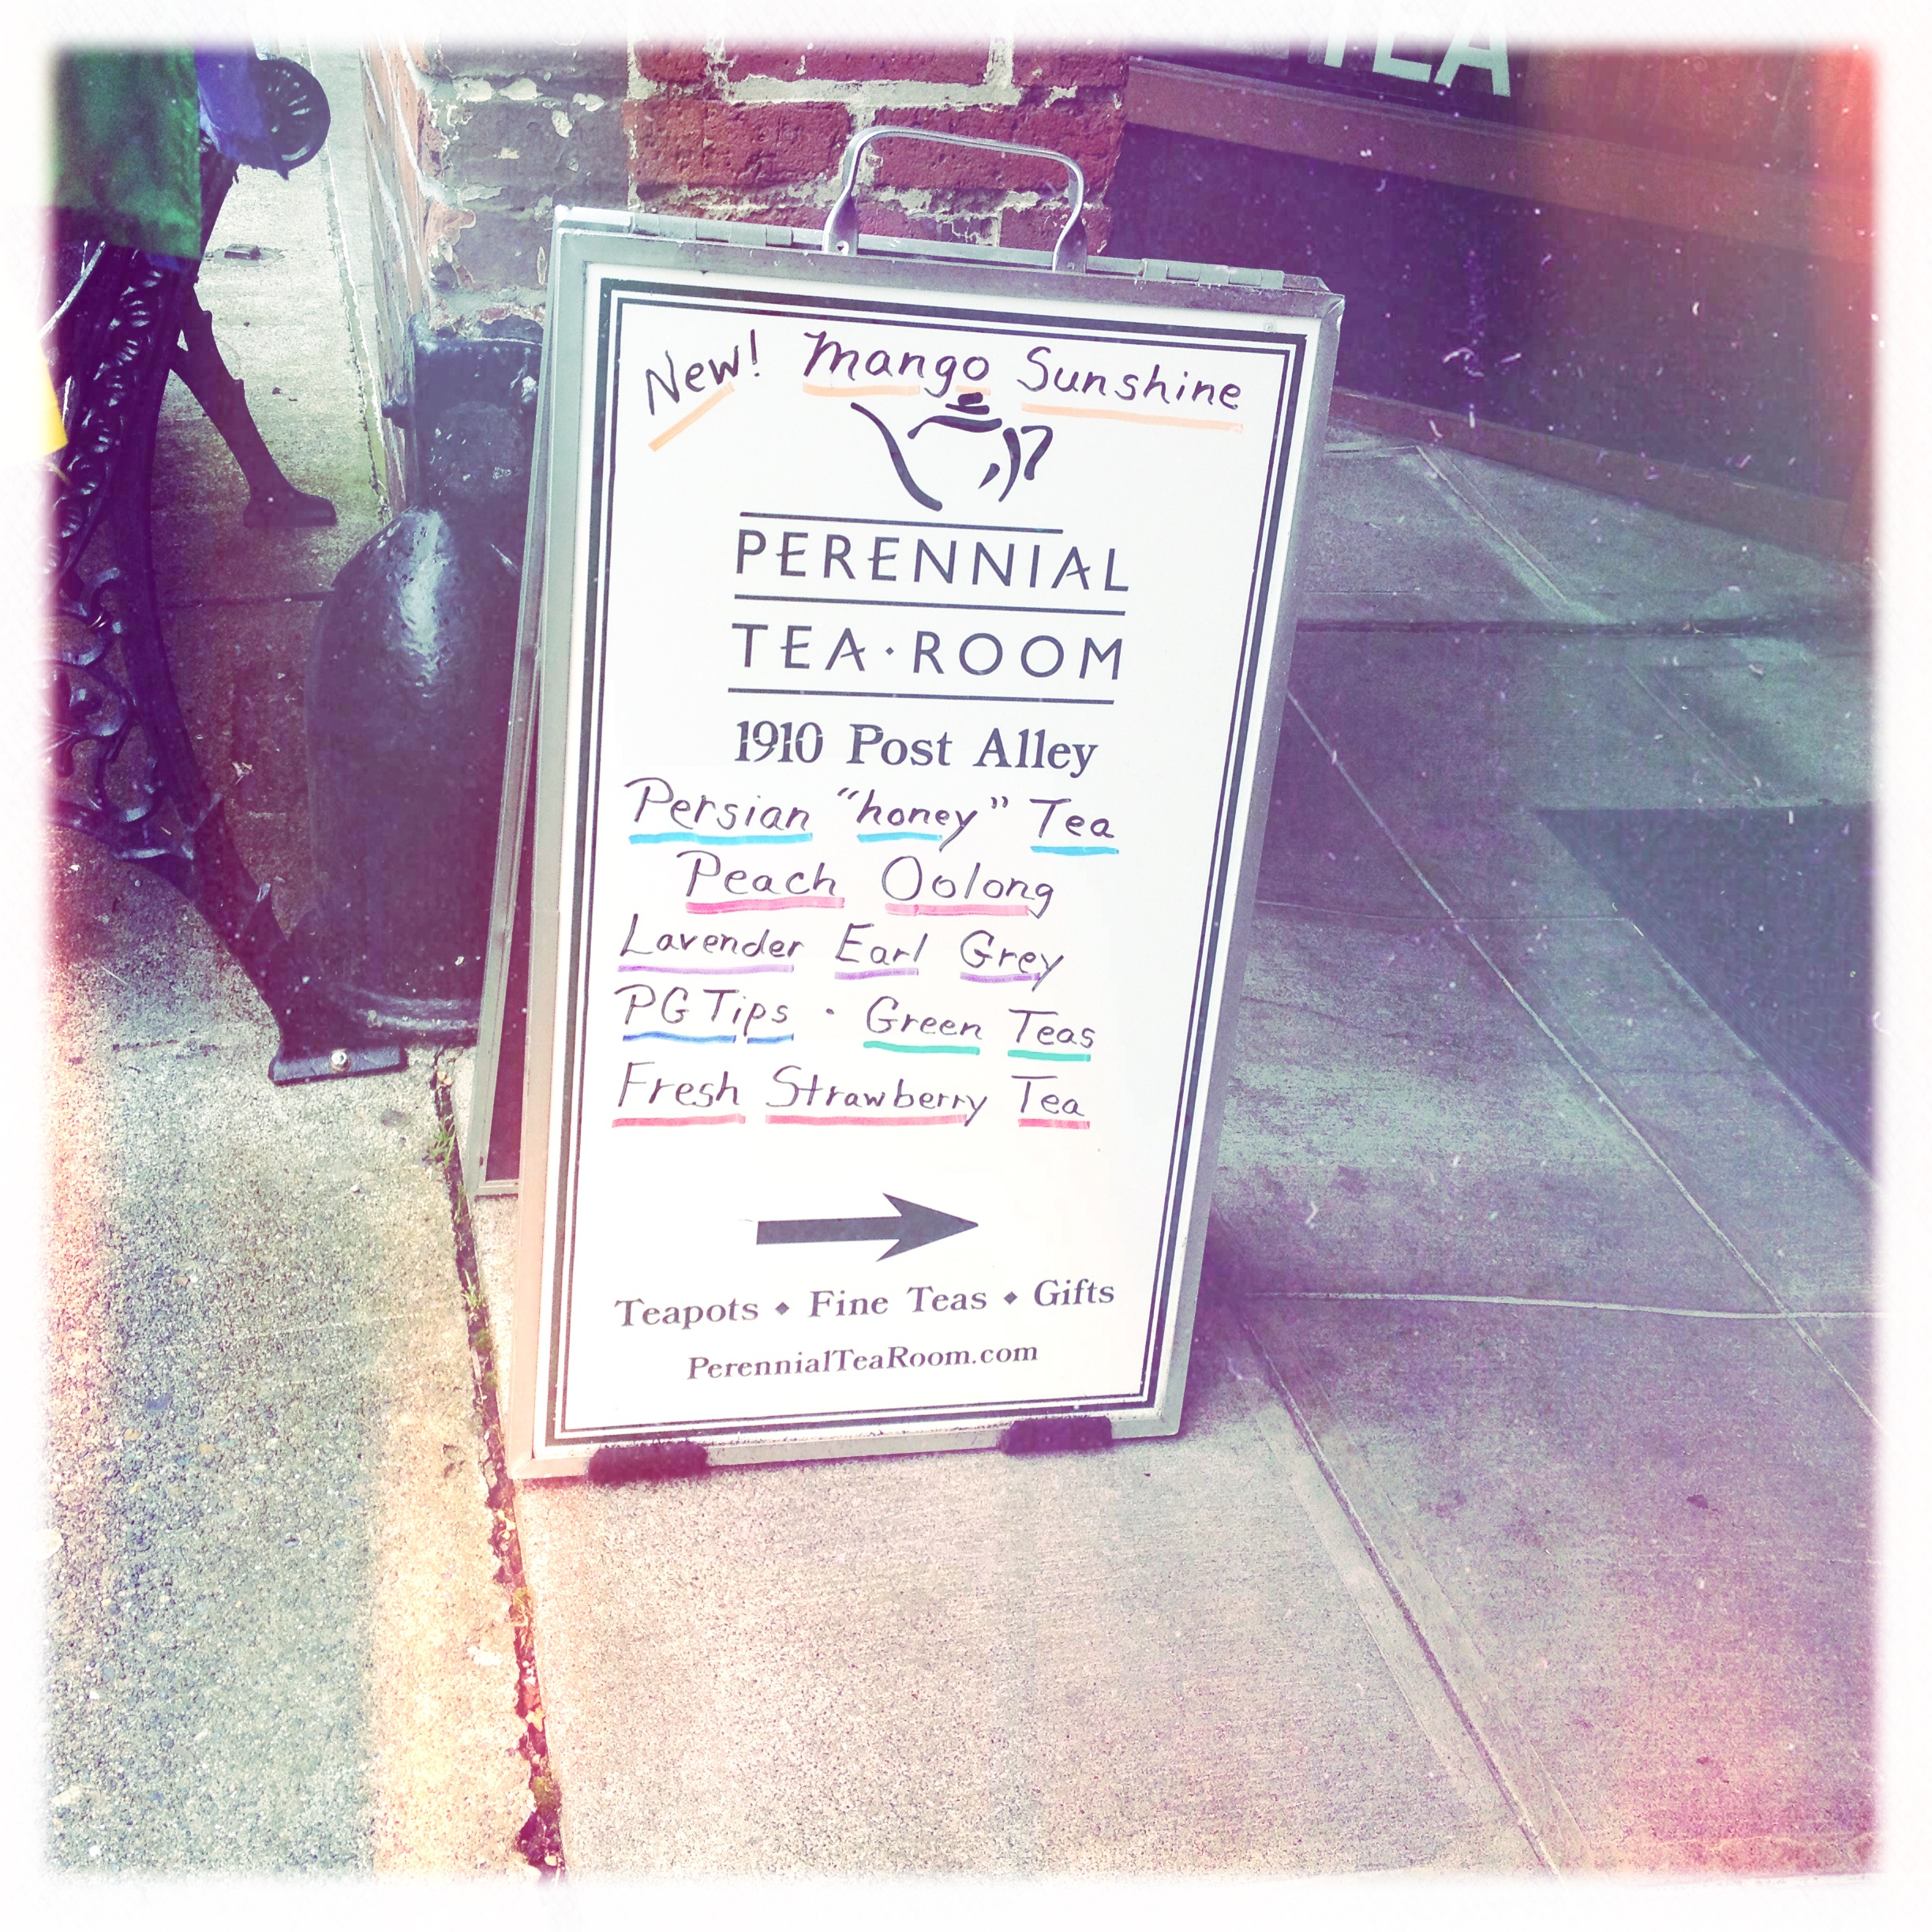 TEA
New! Mango Sunshine
PERENNIAL
TEA·ROOM
1910 Post Alley
Persian "honey" Tea
Peach Oolong
Lavender Earl Grey
PG Tips · Green Teas
Fresh Strawberry Tea
Teapots ◆ Fine Teas ◆ Gifts
PerennialTeaRoom.com